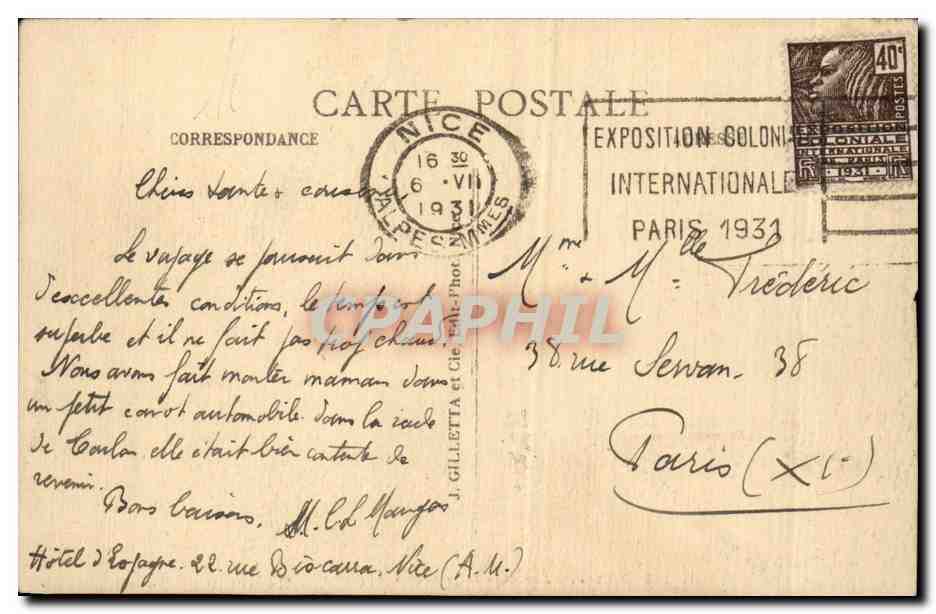 CARTE POSTALE
CORRESPONDANCE
NICE
16 30
6 · VII
1931
ALPES MMES
EXPOSITION COLONI
INTERNATIONALE
PARIS 1931
40c
POSTES
EXPOSITION
COLONIALE
INTERNATIONALE
PARIS
1931
Chères tante & cousine
Le voyage se poursuit dans
d'excellentes conditions, le temps est
superbe et il ne fait pas trop chaud.
Nous avons fait monter maman dans
un petit canot automobile dans la rade
de Toulon elle était bien contente de
revenir.
Bons baisers.
Hôtel d'Espagne. 22 rue Nice (A.M.)
J. GILLETTA et Cie, Edit-Phot. Nice
Mme & Mlle Frédéric
38 rue Servan. 38
Paris (XIe)
CPAPHIL